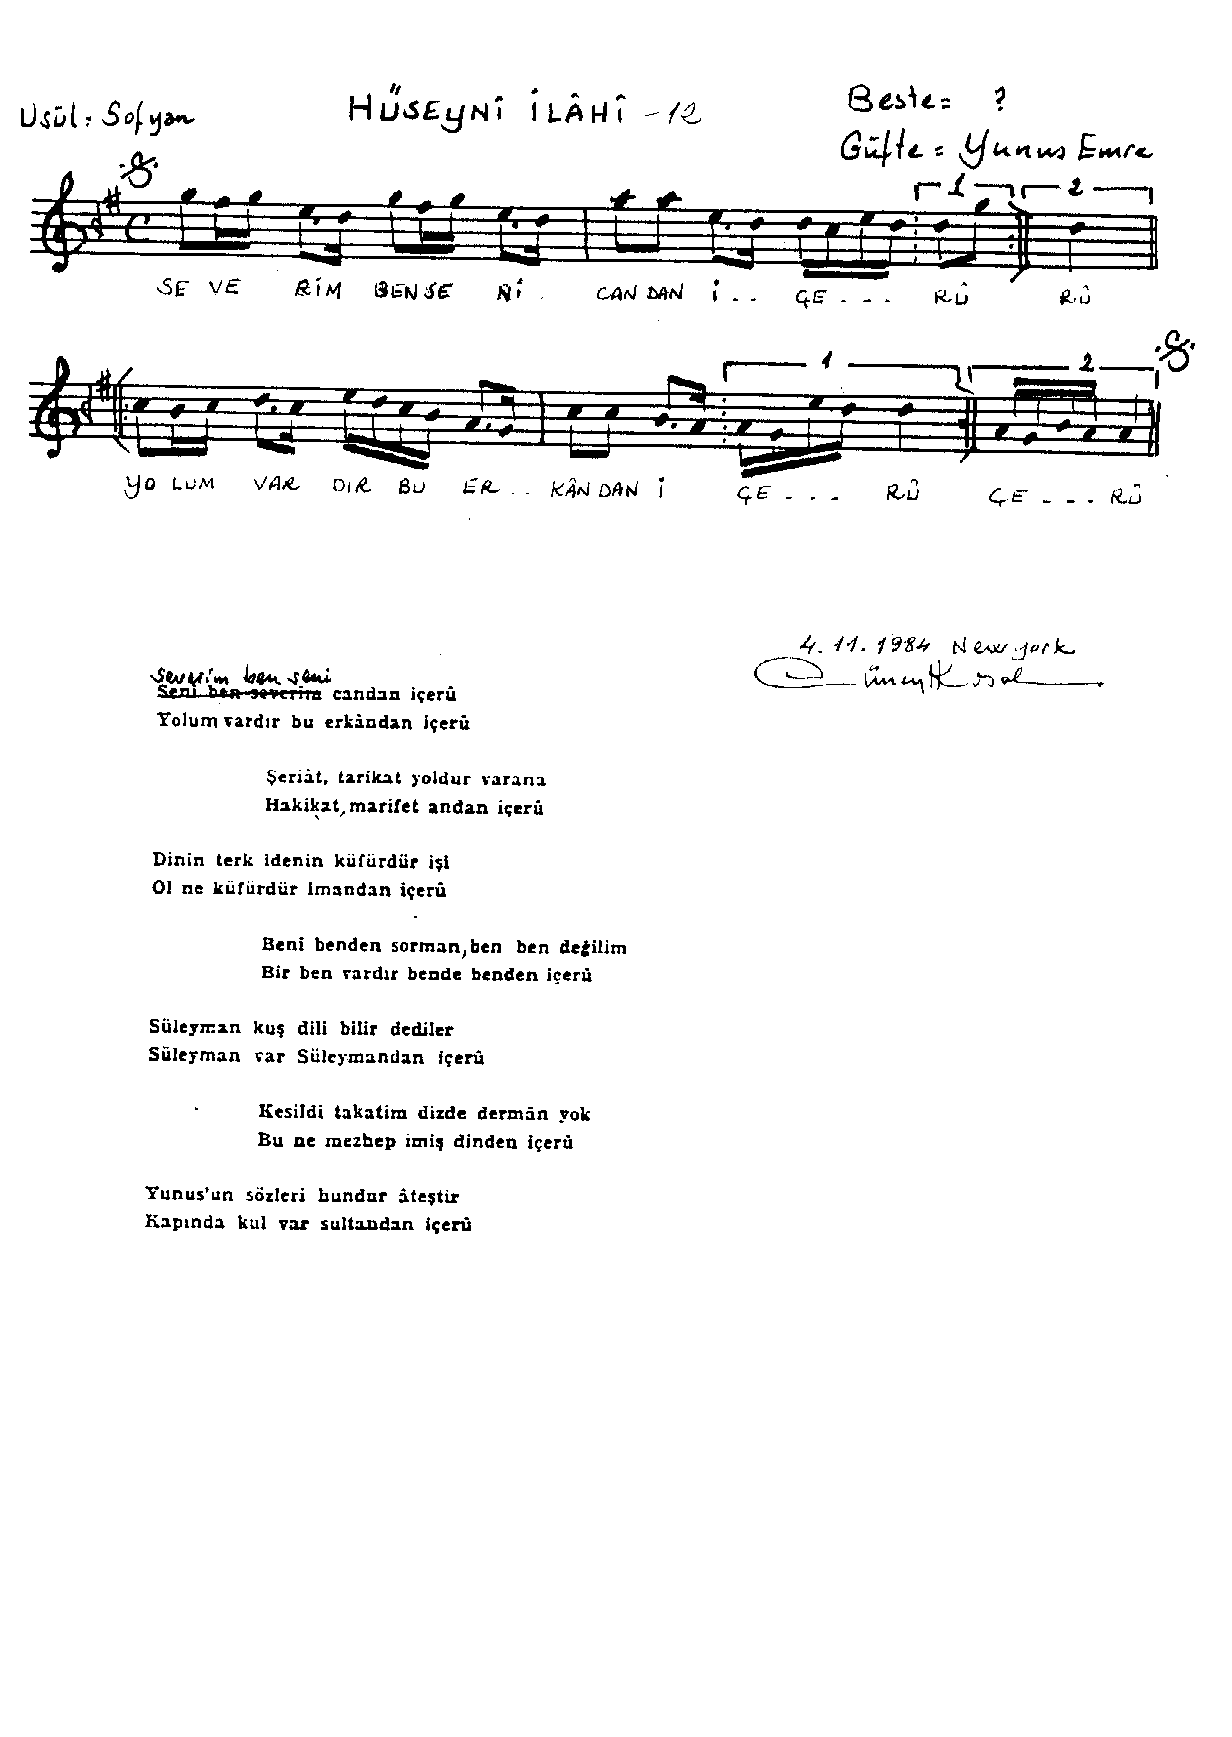 Usûl: Sofyan
HÜSEYNÎ İLÂHÎ - 12
Beste = ?
Güfte = Yunus Emre
1 2
SE VE RİM BEN SE Nİ . CAN DAN İ . . ÇE . . . RÛ RÛ
1 2
YO LUM VAR DIR BU ER . . KÂN DAN İ ÇE . . . RÛ ÇE . . . RÛ
4.11.1984 New york
Severim ben seni
Seni ben severim candan içerû
Yolum vardır bu erkândan içerû
Şeriât, tarikat yoldur varana
Hakikat, marifet andan içerû
Dinin terk idenin küfürdür işi
Ol ne küfürdür imandan içerû
Beni benden sorman, ben ben değilim
Bir ben vardır bende benden içerû
Süleyman kuş dili bilir dediler
Süleyman var Süleymandan içerû
Kesildi takatim dizde dermân yok
Bu ne mezhep imiş dinden içerû
Yunus'un sözleri hundur âteştir
Kapında kul var sultandan içerû